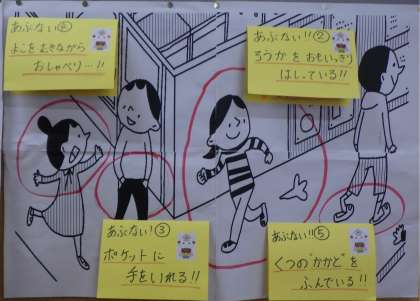 あぶない④
よこをむきながら
おしゃべり…!!
あぶない!!②
ろうかをおもいっきり
はしている!!
あぶない!③
ポケットに
手をいれる!!
あぶない!!⑤
くつの"かかど"を
ふんでいる!!